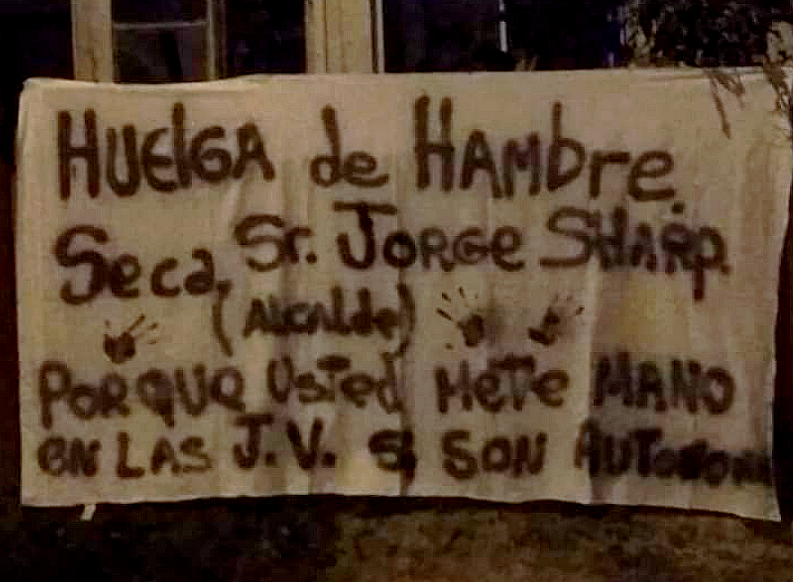 HUElGA de HAMbre.
Seca, Sr. JORGe SHARp.
(AlCAlde)
PORQUe Usted MeTe MANO
eN LAS J.V. Si SON AUTONOMAS